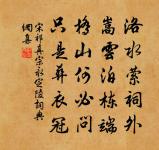 洛水縈祠外
嵩雲泊棟端
橋山何必問
只是葬衣冠
宋祁真宗永定陵詞典